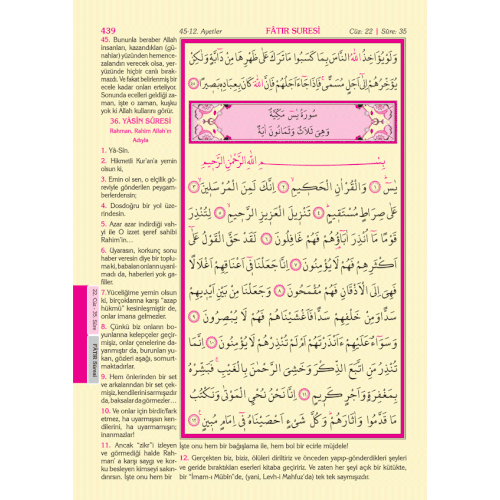 439
45-12. Ayetler
FÂTIR SURESİ
Cüz: 22 | Sûre: 35
45. Bununla beraber Allah
insanları, kazandıkları (gü-
nahlar) yüzünden hemence-
zalandırı verecek olsa, yer-
yüzünde hiçbir canlı bırak-
mazdı. Ve fakat belirlenmiş bir
ecele kadar onları erteliyor.
Sonunda ecelleri geldiği za-
man, işte o zaman, kuşku
yok ki Allah kullarını görür.
36. YÂSÎN SÛRESİ
Rahman, Rahim Allah'ın
Adıyla
1. Yâ-Sîn.
2. Hikmetli Kur'an'a yemin
olsun ki,
3. Emin ol sen, o elçilik gö-
reviyle gönderilen peygam-
berlerdensin;
4. Dosdoğru bir yol üze-
rindesin.
5. Azar azar indirdiği vah-
yi ile O izzet şeref sahibi
Rahim'in...
6. Uyarasın, korkunç sonu
haber veresin diye bir toplu-
ma ki, babaları onların uyarıl-
madı da, haberleri yok ga-
filler.
7. Yüceliğime yemin olsun
ki, birçoklarına karşı "azap
hükmü" kesinleşmiştir de,
onlar imana gelmezler.
8. Çünkü biz onların bo-
yunlarına kelepçeler geçir-
mişiz, onlar çenelerine da-
yanmıştır da, burunları yu-
karı, gözleri aşağı, somurt-
maktadırlar.
9. Hem önlerinden bir set
ve arkalarından bir set çek-
mişiz, kendilerini sarmışızdır
da, baksalar da görmezler...
10. Ve onlar için birdir/fark
etmez, ha uyarmışsan ken-
dilerini, ha uyarmamışsın;
inanmazlar!
11. Ancak "zikr"i izleyen
ve görmediği halde Rah-
man' a karşı saygı ve kor-
ku besleyen kimseyi sakın-
dırırsın. İşte onu hem bir
وَلَوْ يُؤَاخِذُ اللّٰهُ النَّاسَ بِمَا كَسَبُوا مَا تَرَكَ عَلٰى ظَهْرِهَا مِنْ دَٓابَّةٍ وَلٰكِنْ
يُؤَخِّرُهُمْ اِلٰٓى اَجَلٍ مُسَمًّى فَاِذَا جَٓاءَ اَجَلُهُمْ فَاِنَّ اللّٰهَ كَانَ بِعِبَادِهِ بَصِيرًا ﴿٤٥﴾
سُورَةُ يٰسٓ مَكِّيَّةٌ
وَهِيَ ثَلَاثٌ وَثَمَانُونَ اٰيَةً
بِسْمِ اللّٰهِ الرَّحْمٰنِ الرَّحِيمِ
يٰسٓ ﴿١﴾ وَالْقُرْاٰنِ الْحَكِيمِ ﴿٢﴾ اِنَّكَ لَمِنَ الْمُرْسَلِينَ ﴿٣﴾
عَلٰى صِرَاطٍ مُسْتَقِيمٍ ﴿٤﴾ تَنْزِيلَ الْعَزِيزِ الرَّحِيمِ ﴿٥﴾ لِتُنْذِرَ
قَوْمًا مَٓا اُنْذِرَ اٰبَٓاؤُهُمْ فَهُمْ غَافِلُونَ ﴿٦﴾ لَقَدْ حَقَّ الْقَوْلُ عَلٰٓى
اَكْثَرِهِمْ فَهُمْ لَا يُؤْمِنُونَ ﴿٧﴾ اِنَّا جَعَلْنَا فٓى اَعْنَاقِهِمْ اَغْلَالًا
فَهِيَ اِلَى الْاَذْقَانِ فَهُمْ مُقْمَحُونَ ﴿٨﴾ وَجَعَلْنَا مِنْ بَيْنِ اَيْدِيهِمْ
سَدًّا وَمِنْ خَلْفِهِمْ سَدًّا فَاَغْشَيْنَاهُمْ فَهُمْ لَا يُبْصِرُونَ ﴿٩﴾
وَسَوَٓاءٌ عَلَيْهِمْ ءَاَنْذَرْتَهُمْ اَمْ لَمْ تُنْذِرْهُمْ لَا يُؤْمِنُونَ ﴿١٠﴾ اِنَّمَا
تُنْذِرُ مَنِ اتَّبَعَ الذِّكْرَ وَخَشِيَ الرَّحْمٰنَ بِالْغَيْبِ فَبَشِّرْهُ
بِمَغْفِرَةٍ وَاَجْرٍ كَرِيمٍ ﴿١١﴾ اِنَّا نَحْنُ نُحْيِ الْمَوْتٰى وَنَكْتُبُ
مَا قَدَّمُوا وَاٰثَارَهُمْ وَكُلَّ شَيْءٍ اَحْصَيْنَاهُ فٓى اِمَامٍ مُبِينٍ ﴿١٢﴾
işte onu hem bir bağışlama ile, hem bol bir ecirle müjdele!
12. Gerçekten biz, biziz, ölüleri diriltiriz ve önceden yapıp-gönderdikleri şeyleri
ve geride bıraktıkları eserleri kitaba geçiririz. Ve zaten her şeyi açık bir kütükte,
bir "İmam-ı Mübîn"de, (yani, Levh-i Mahfuz'da) tek tek saymışızdır.
22. Cüz - 35. Sûre
FÂTIR Suresi